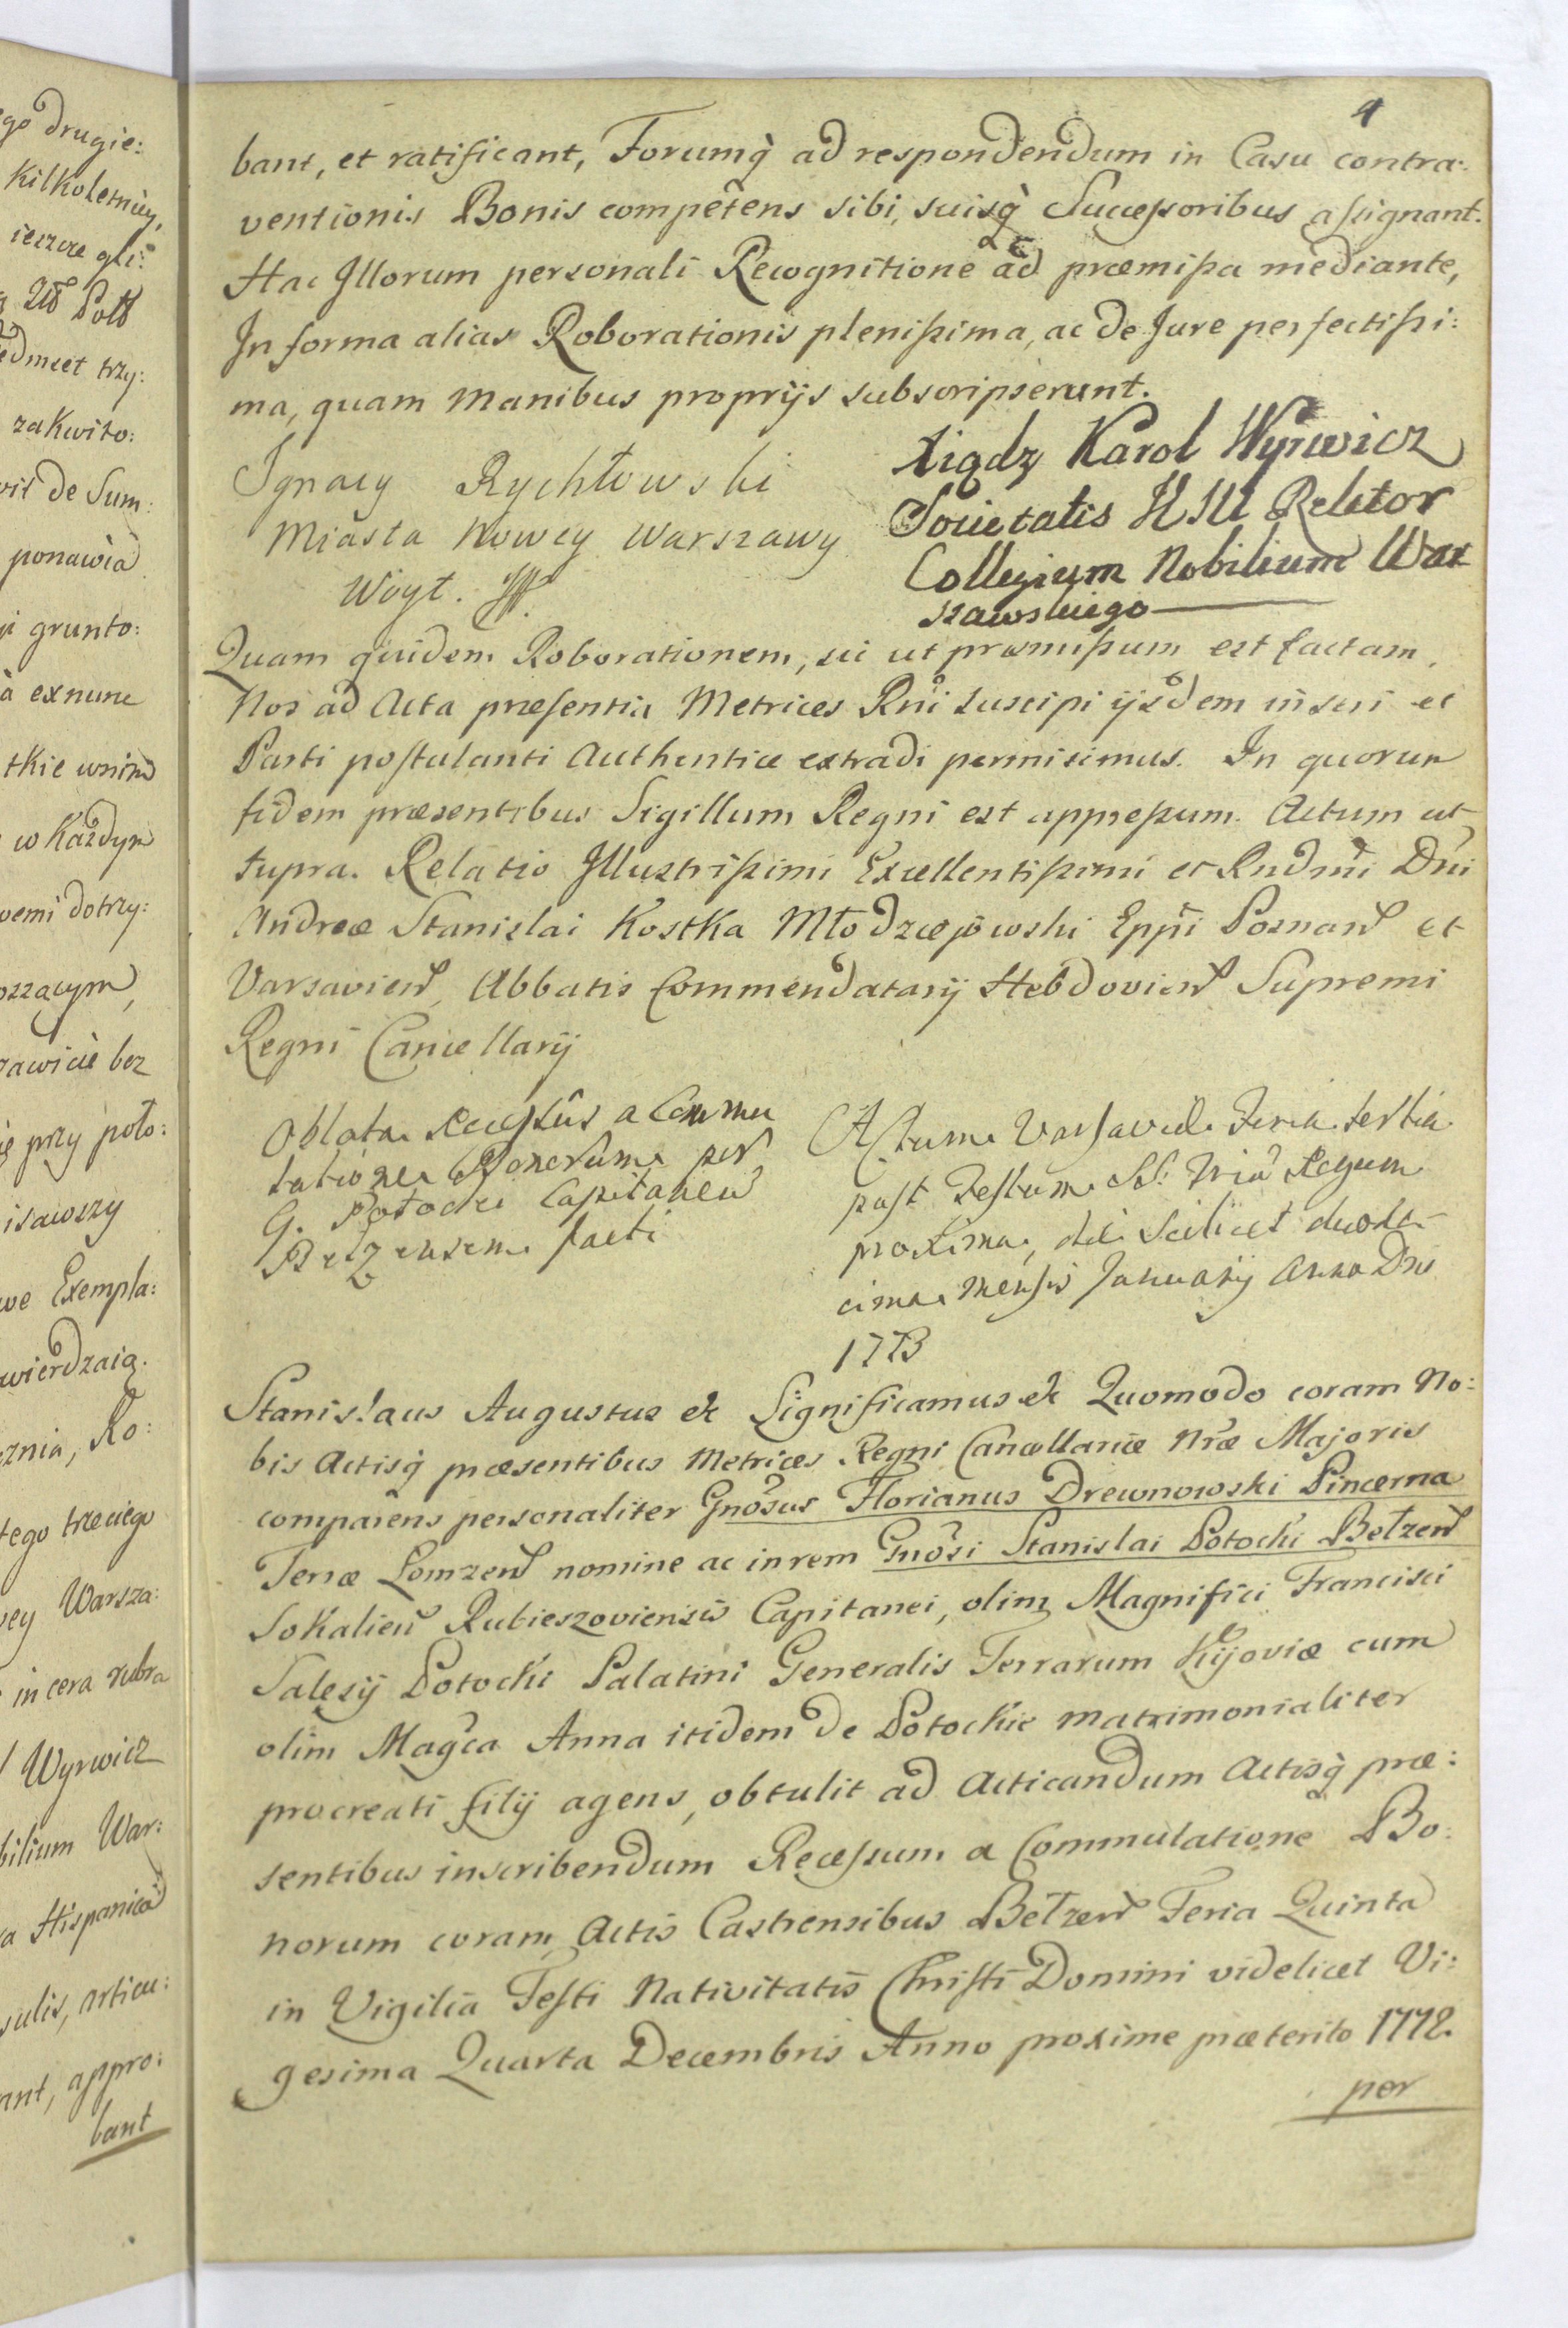 ego drugie:
Kilkoletniey,
ieszcze gli:
Pols
edmeet trzy:
zakwito:
vit de Sum:
ponawia
i grunto:
à exnunc
tkie wnim
w Każdym
wemi dotrzy:
oszącym,
rawicie bez
ię przy poło:
isawszy
we Exempla:
wierdzaią.
cznia, Ro:
tego trzeciego
wey Warsza:
in cera rubra
l Wyrwicz
bilium War:
a Hispanica
sulis, articu:
ant, appro:
bant
4
bant, et ratificant, Forumq̀ ad respondendum in Casu contra:
ventionis Bonis compētens sibi, suisq̀ Successoribus assignant.
Hac Jllorum personali Recognitione ad præmissa mediante,
In forma alias Roborationis plenissima, ac de Jure perfectissi:
ma, quam manibus proprijs subscripserunt.
Ignacy Rychłowski
Miasta Nowey Warszawy
Woyt.
Xiądz Karol Wyrwicz
Societatis Rektor
Collegium Nobilium War
szawskiego
Quam quidem Roborationem, sic ut præmissum est factam,
Nos ad Acta præsentia Metrices Rni suscipi ijsdem inseri et
Parti postulanti Authentice extradi permisimus. In quorum
fidem præsentibus Sigillum Regni est appressum. Actum ut
supra. Relatio Jllustrissimi Excellentissimi et Rndmi Dni
Andreæ Stanislai Kostka Młodzieiowski Eppi Posnan̄ et
Varsavien̄, Abbatis Commendatarij Hebdovien̄ Supremi
Regni Cancellarij
Oblata Recessûs a Commu
tatione Bonorum per
G. Potocki Capitaneū
Belzensem facti
Actum Varsaviæ Feria tertia
post Festum SS: Triū Regum
proxima, die scilicet duode-
cima Mensis Januarij Anno Dni
1773
Stanislaus Augustus &c Significamus &c Quomodo coram No:
bis Actisq̀ præsentibus Metrices Regni Cancellariæ Nræ Majoris
comparens personaliter Gnosus Florianus Drewnowski Pincerna
Terræ Lomzen̄ nomine ac in rem Gnosi Stanislai Potocki Bełzen̄
Sokalien̄ Rubieszoviensis Capitanei, olim Magnifici Francisci
Salesij Potocki Palatini Generalis Terrarum Kijoviæ cum
olim Magca Anna itidem de Potockie matrimonialiter
procreati filij agens, obtulit ad Acticandum Actisq̀ præ:
sentibus inscribendum Recessum a Commutatione Bo:
norum coram Actis Castrensibus Bełzen̄ Feria Quinta
in Vigilia Festi Nativitatis Christi Domini videlicet Vi:
gesima Quarta Decembris Anno proxime præterito 1772.
per